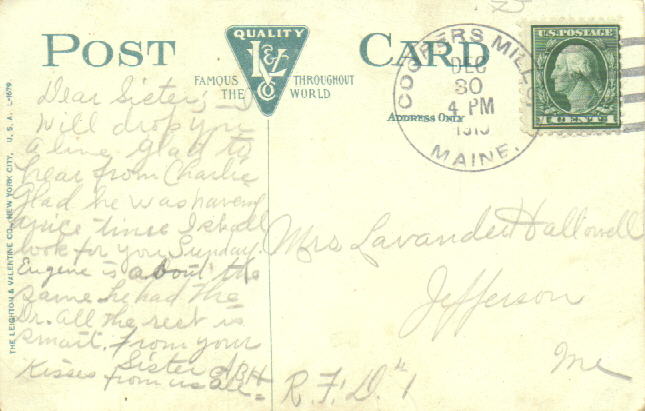 POST CARD
QUALITY
L&V Co
FAMOUS THROUGHOUT
THE WORLD
Address Only
COOPERS MILLS
DEC
30
4 PM
MAINE.
U.S. POSTAGE
1 CENT 1
THE LEIGHTON & VALENTINE CO., NEW YORK CITY, U. S. A. L-1679.
Dear Sister; I
will drop you
a line Glad to
hear from Charlie
Glad he was haveing
a nice time I shall
look for you Sunday
Eugene is about the
same he had the
Dr. all the rest is
smart. From your
Sister ABH
Kisses from us all =
Mrs Lavander Hallowell
Jefferson
Me
R. F. D. #1